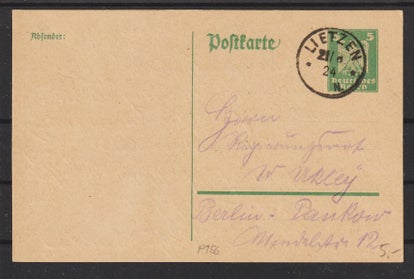 Absender:
Postkarte
LIETZEN
24
N
5
Deutsches
Reich
Herrn
Regierungsrat
W
Berlin - Pankow
Mendelstr 12
P156
5,-